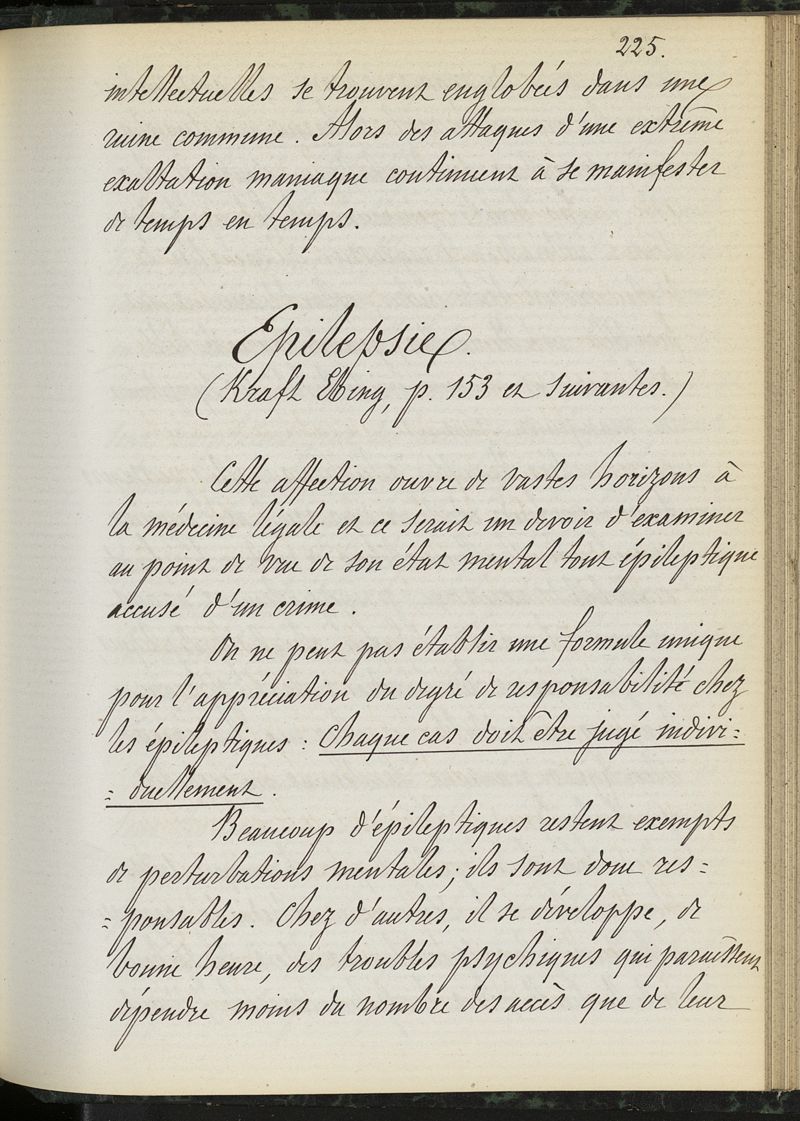 225.
intellectuelles se trouvent englobées dans une
ruine commune. Alors des attaques d'une extrême
exaltation maniaque continuent à se manifester
de temps en temps.
Epilepsie.
(Kraft Ebing, p. 153 et suivantes.)
Cette affection ouvre de vastes horizons à
la médecine légale et ce serait un devoir d'examiner
au point de vue de son état mental tout épileptique
accusé d'un crime.
On ne peut pas établir une formule unique
pour l'appréciation du degré de responsabilité chez
les épileptiques : chaque cas doit être jugé indivi=
=duellement.
Beaucoup d'épileptiques restent exempts
de perturbations mentales; ils sont donc res=
=ponsables. Chez d'autres, il se développe, de
bonne heure, des troubles psychiques qui paraissent
dépendre moins du nombre des accès que de leur